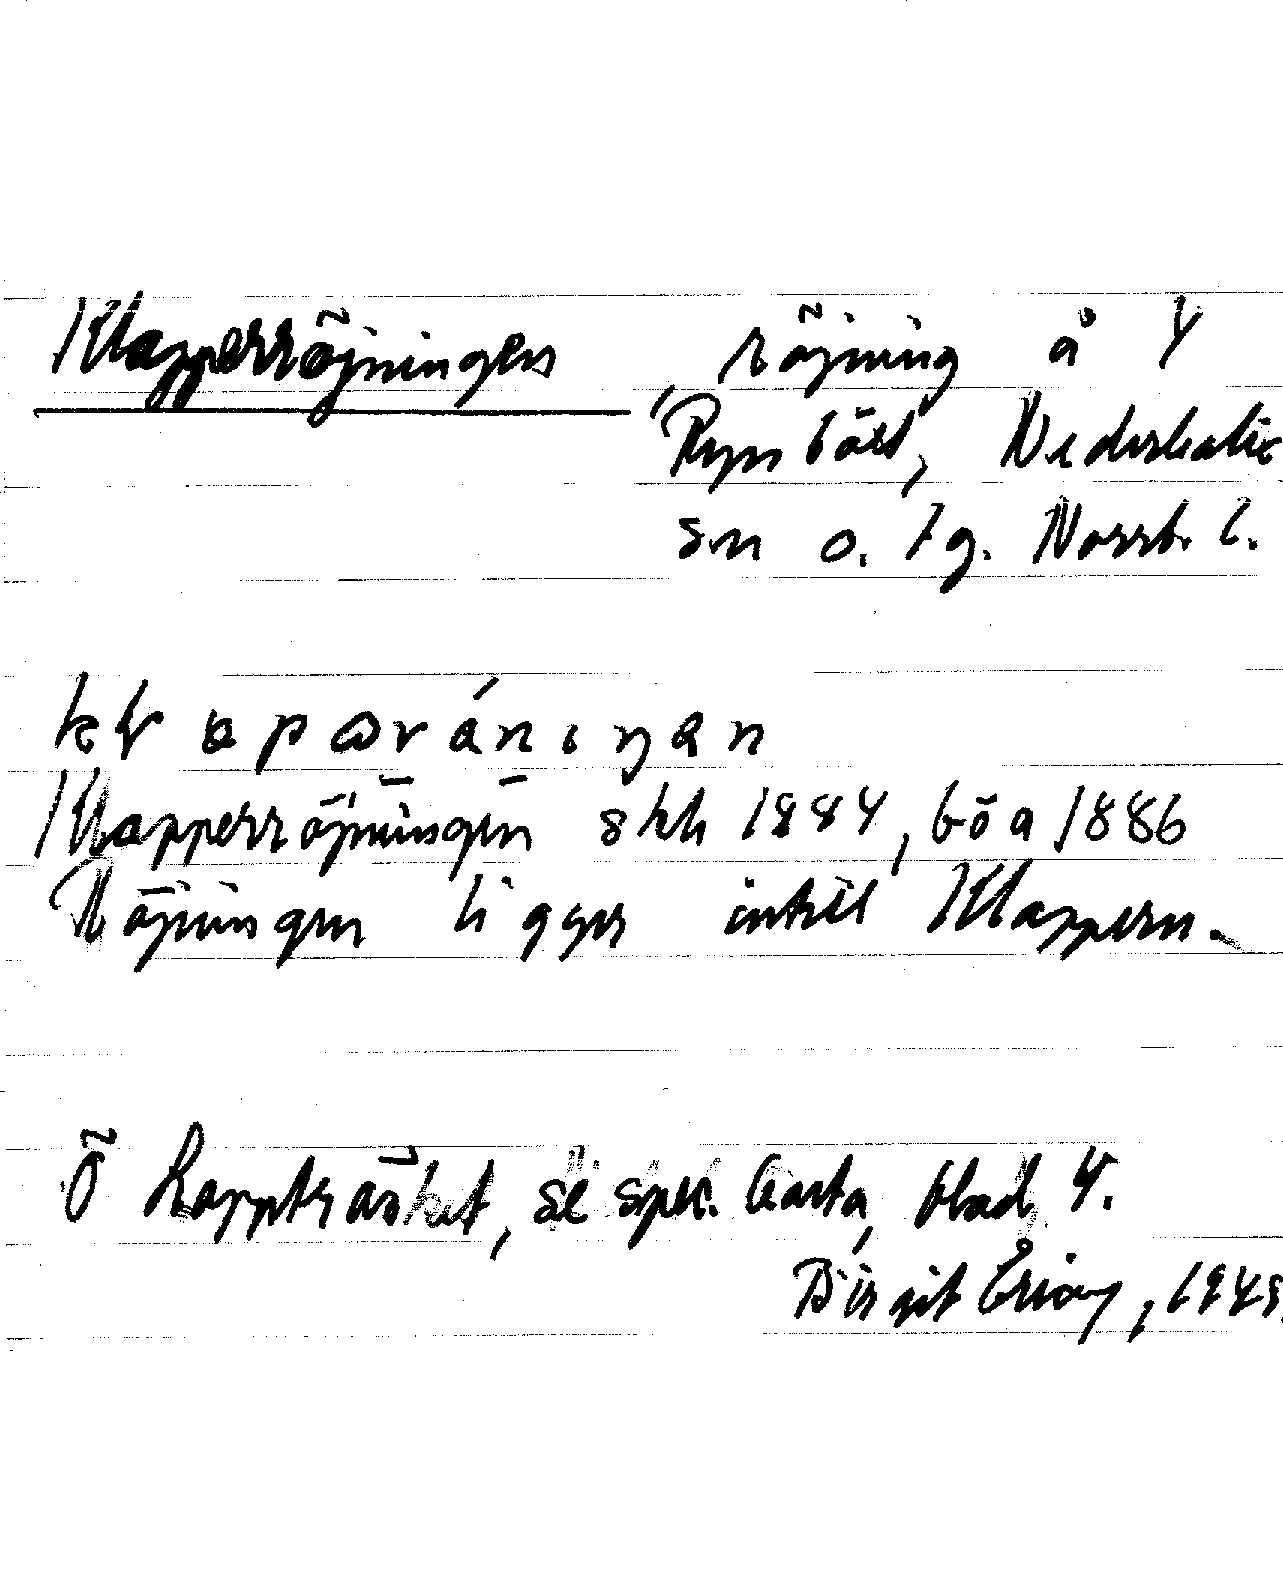 Klapperröjningen, röjning å Y
Ryssbält, Nederkalix
sn o. tg. Norrb. l.
Klapperröjningen skh 1884, böa 1886
Röjningen ligger intill Klappern.
Ö Lappträsket, se spec. karta, blad 4.
Birgit 1949.